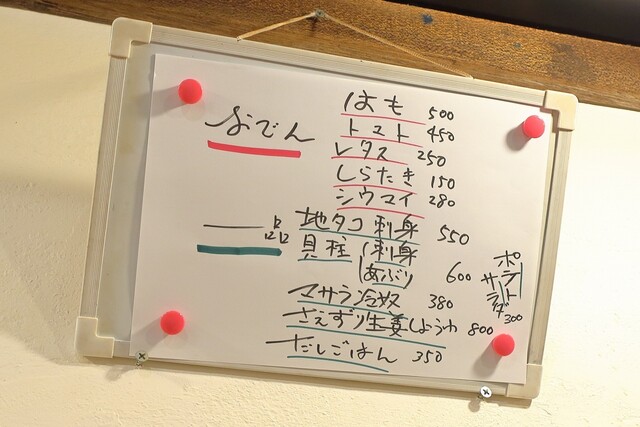 おでん
はも 500
トマト 450
レタス 250
しらたき 150
シウマイ 280
一品
地タコ刺身 550
貝柱 刺身
あぶり 600
マサラ冷奴 380
さえずり生姜しょうゆ 800
だしごはん 350
ポテト
サラダ
300